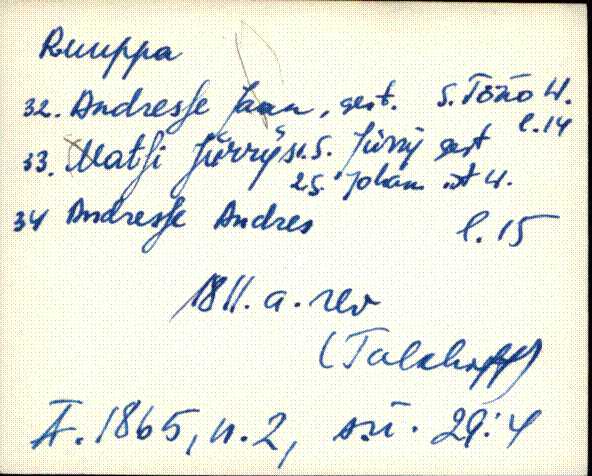 Ruuppa
32. Andresse Jaan, gest. S. Tõno 4.
l. 14
33. Matsi Jürry 1.S. Jürry gest
2S. Johan ist 4.
34 Andresse Andres l. 15
1811. a. rev
(Talkhoff)
F. 1865, n. 2, s.ü. 29:4